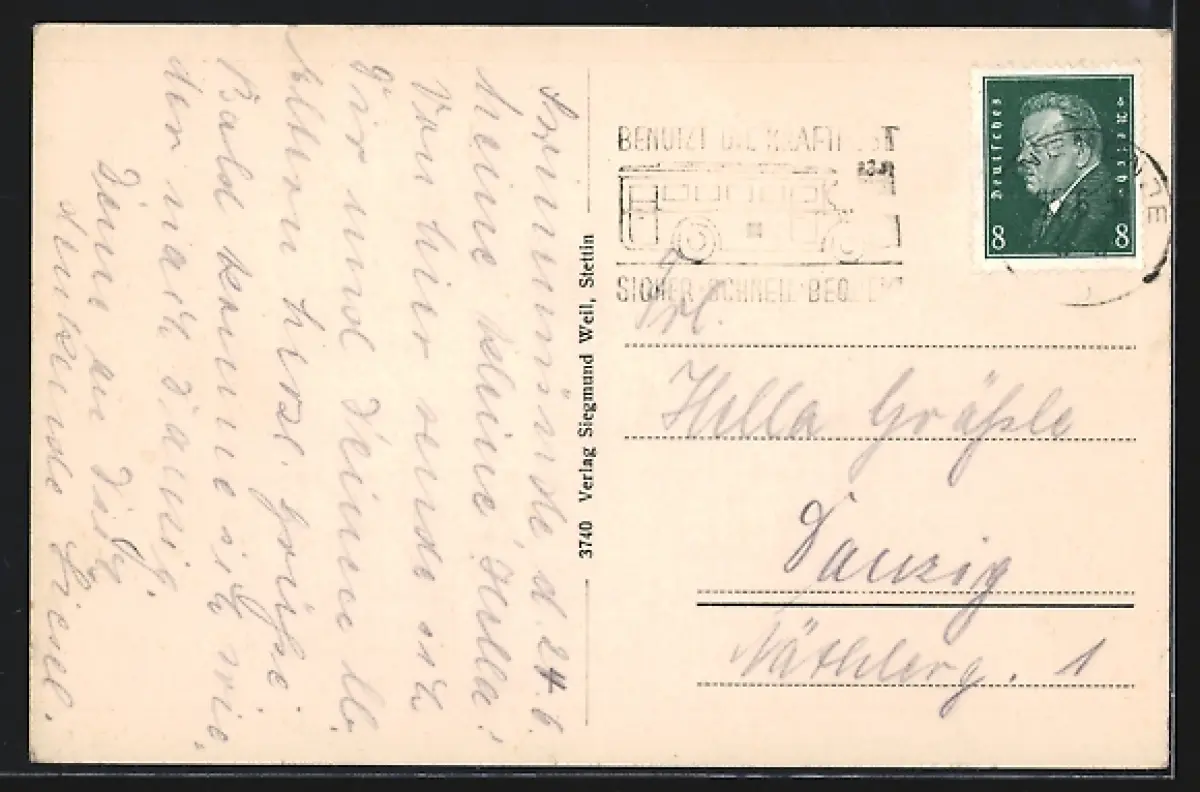 Swinemünde, d. 24.6.
Meine kleine Hella!
Von hier sende ich
Dir und Deinen lb.
Eltern herzl. Grüße
Bald komme ich wie-
der nach Danzig.
Deine an Dich
denkende Liesel.
3740 Verlag Siegmund Weil, Stettin
BENUTZT DIE KRAFTPOST
SICHER·SCHNELL·BEQUEM
Deutsches Reich
8 8
Frl.
Hella Gräßle
Danzig
1